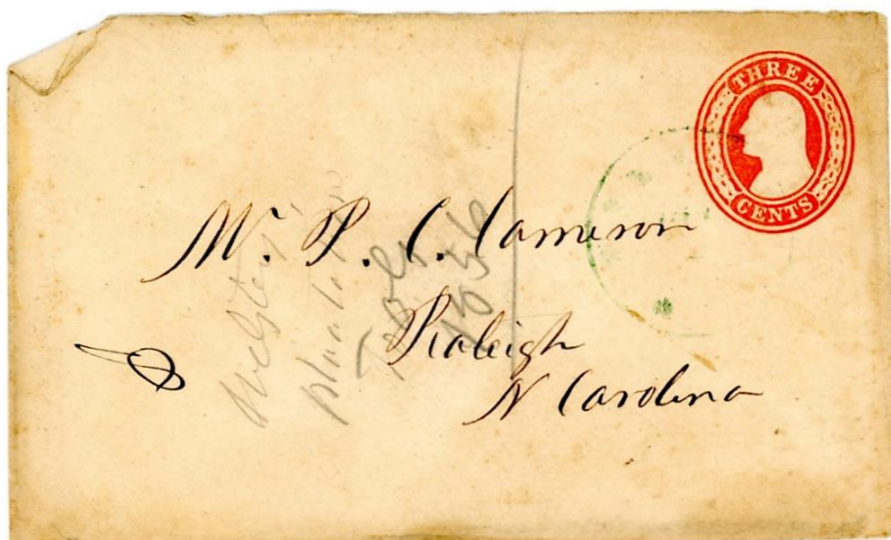 THREE
CENTS
Mr. P. C. Cameron
Raleigh
N Carolina
1856